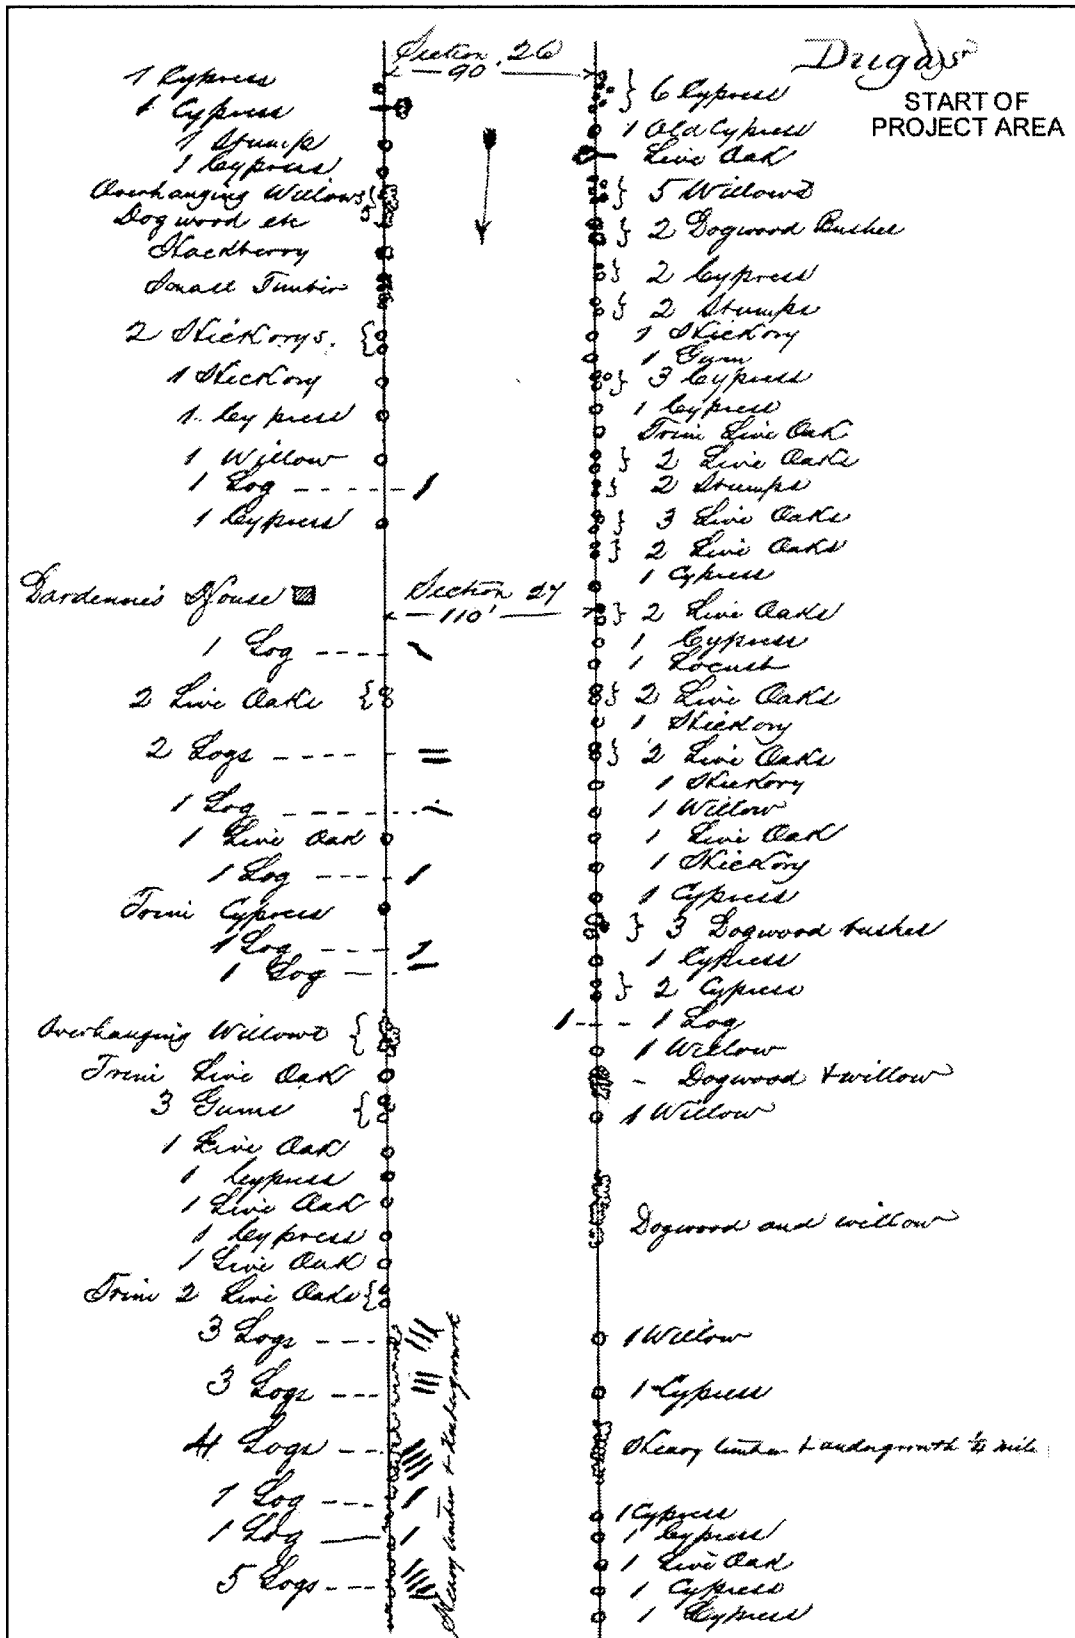 Section 26
90
Dugas
START OF
PROJECT AREA
1 Cypress
1 Cypress
1 Stump
1 Cypress
Overhanging Willows
Dogwood etc
Hackberry
Small Timber
2 Hickorys.
1 Hickory
1 Cypress
1 Willow
1 Log
1 Cypress
Dardenne's House
1 Log
2 Live Oaks
2 Logs
1 Log
1 Live Oak
1 Log
Trim Cypress
1 Log
1 Log
Overhanging Willows
Trim Live Oak
3 Gums
1 Live Oak
1 Cypress
1 Live Oak
1 Cypress
1 Live Oak
Trim 2 Live Oaks
3 Logs
3 Logs
4 Logs
1 Log
1 Log
5 Logs
Heavy timber & undergrowth
Section 27
110'
6 Cypress
1 Old Cypress
Live Oak
5 Willows
2 Dogwood Bushes
2 Cypress
2 Stumps
1 Hickory
1 Gum
3 Cypress
1 Cypress
Trim Live Oak
2 Live Oaks
2 Stumps
3 Live Oaks
2 Live Oaks
1 Cypress
2 Live Oaks
1 Cypress
1 Locust
2 Live Oaks
1 Hickory
2 Live Oaks
1 Hickory
1 Willow
1 Live Oak
1 Hickory
1 Cypress
3 Dogwood bushes
1 Cypress
2 Cypress
1 Log
1 Willow
Dogwood & willow
1 Willow
Dogwood and willow
1 Willow
1 Cypress
Heavy timber & undergrowth ¼ mile
1 Cypress
1 Cypress
1 Live Oak
1 Cypress
1 Cypress